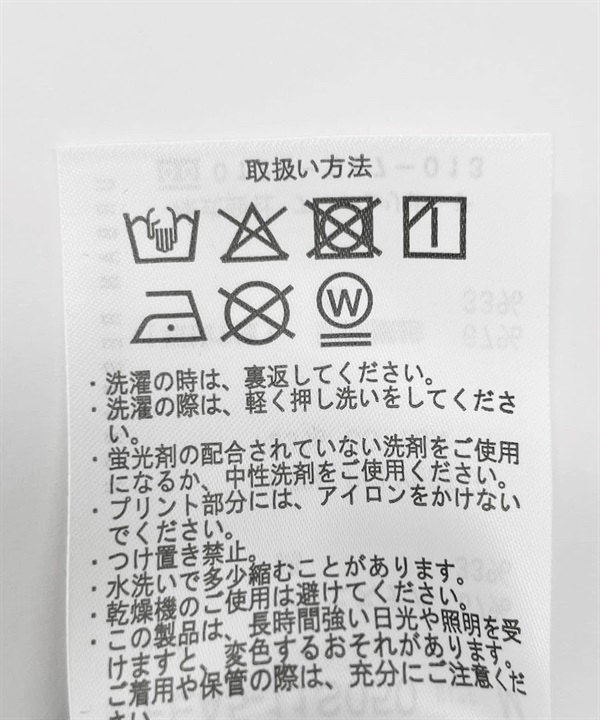 取扱い方法
W
・洗濯の時は、裏返してください。
・洗濯の際は、軽く押し洗いをしてくださ
い。
・蛍光剤の配合されていない洗剤をご使用
になるか、中性洗剤をご使用ください。
・プリント部分には、アイロンをかけない
でください。
・つけ置き禁止。
・水洗いで多少縮むことがあります。
・乾燥機のご使用は避けてください。
・この製品は、長時間強い日光や照明を受
けますと、変色するおそれがあります。
ご着用や保管の際は、充分にご注意くだ
さい。